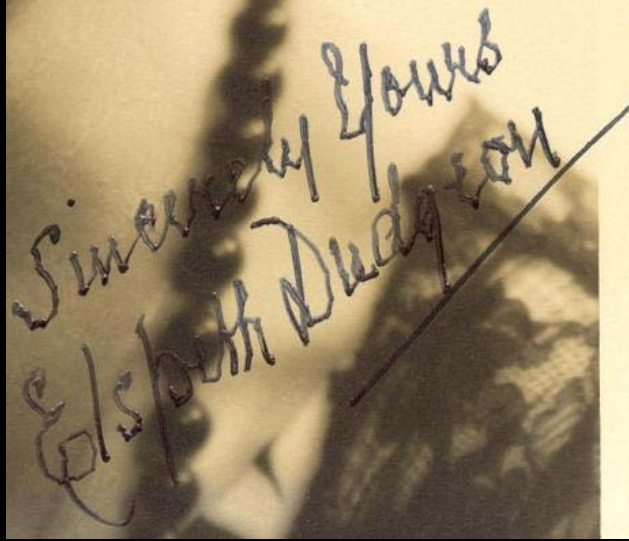 Sincerely Yours
Elspeth Dudgeon